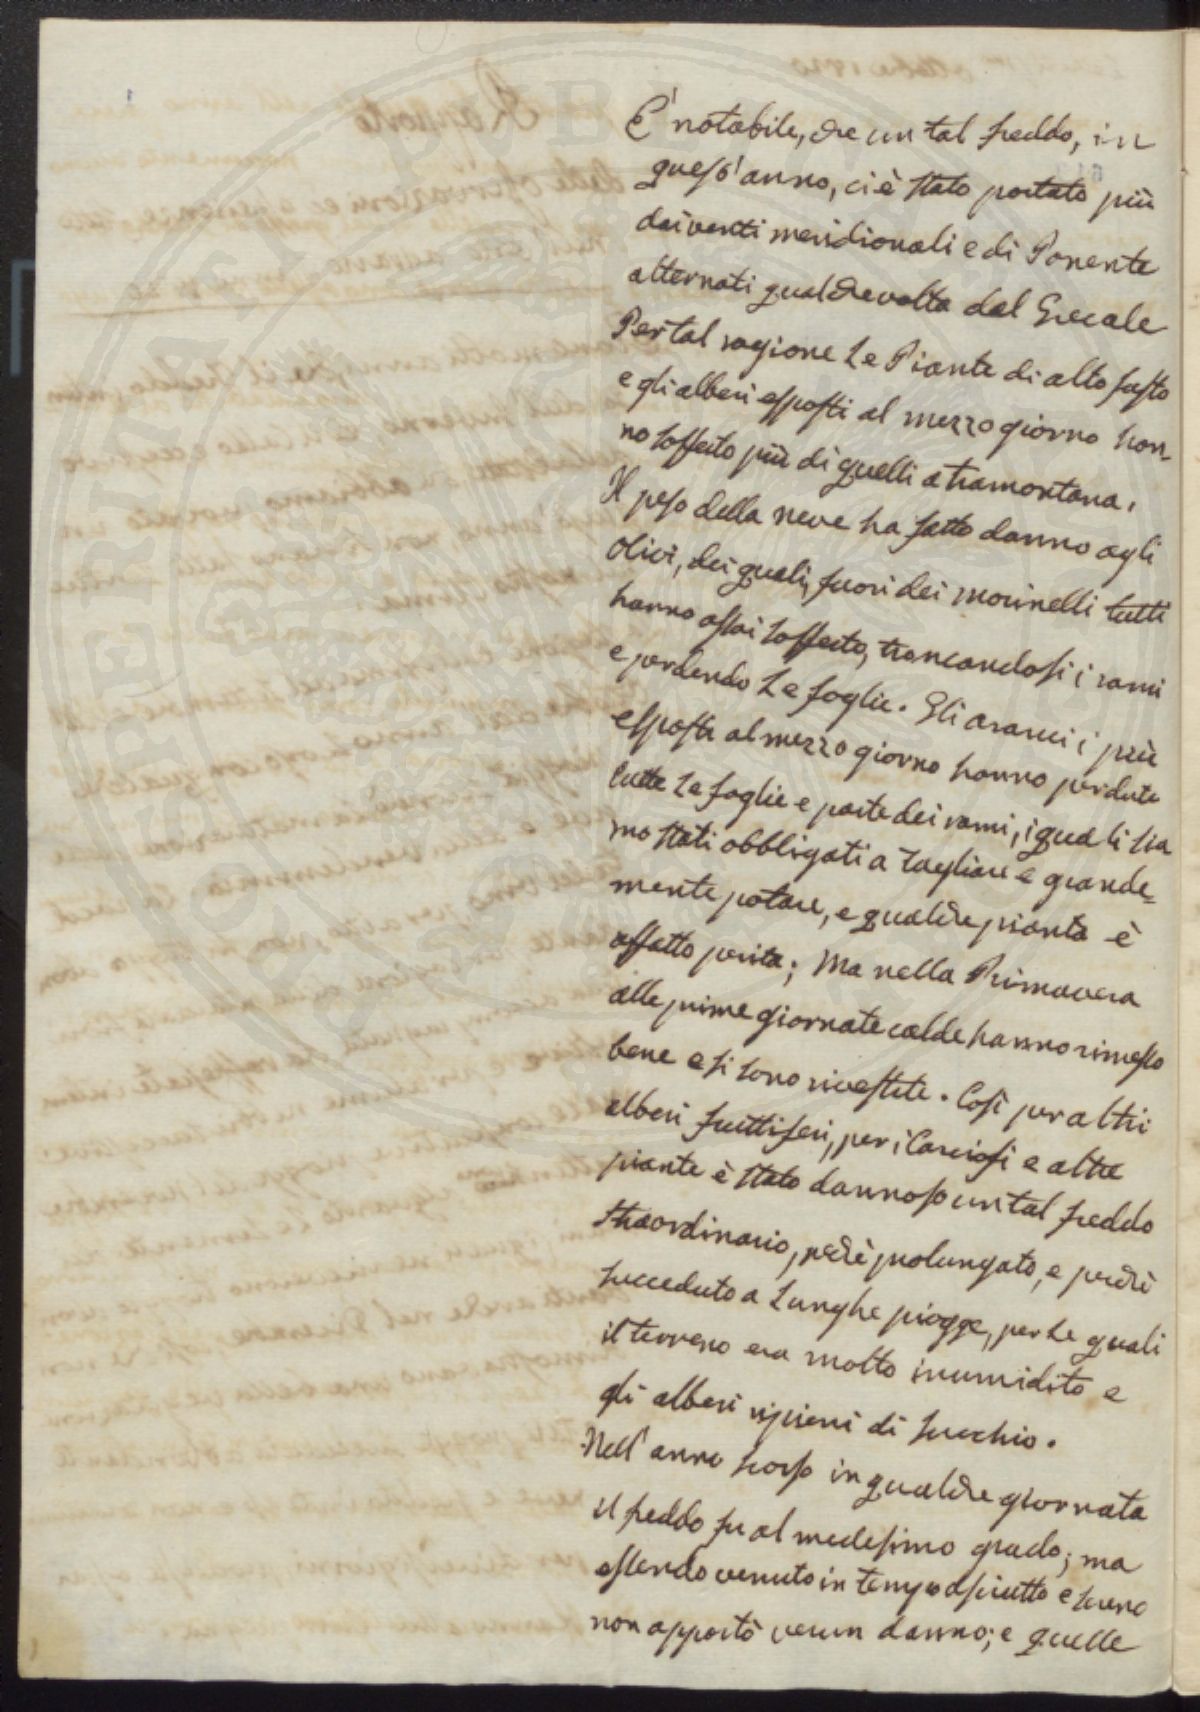 È notabile, che un tal freddo, in
quest'anno, ci è stato portato più
dai venti meridionali e di Ponente
alternati qualche volta dal Grecale
Per tal ragione Le Piante di alto fusto
e gli alberi esposti al mezzo giorno han-
no sofferto più di quelli a tramontana.
Il peso della neve ha fatto danno agli
olivi, dei quali, fuori dei morinelli tutti
hanno assai sofferto, troncandosi i rami
e perdendo Le foglie. Gli aranci i più
esposti al mezzo giorno hanno perdute
tutte Le foglie e parte dei rami, i quali sia
mo stati obbligati a tagliare e grande=
mente potare, e qualche pianta è
affatto perita; Ma nella Primavera
alle prime giornate calde hanno rimesso
bene e si sono rivestite. Così per altri
alberi fruttiferi, per i Carciofi e altre
piante è stato dannoso un tal freddo
straordinario, perchè prolungato, e perchè
succeduto a Lunghe piogge, per Le quali
il terreno era molto inumidito e
gli alberi ripieni di succhio.
Nell'anno scorso in qualche giornata
il freddo fu al medesimo grado; ma
essendo venuto in tempo asciutto e sereno
non apportò verun danno; e quelle